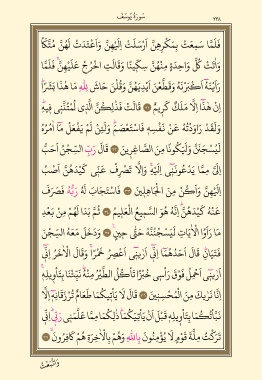 سُورَةُ يُوسُفَ
٢٣٨
فَلَمَّا سَمِعَتْ بِمَكْرِهِنَّ اَرْسَلَتْ اِلَيْهِنَّ وَاَعْتَدَتْ لَهُنَّ مُتَّكَـًٔا
وَاٰتَتْ كُلَّ وَاحِدَةٍ مِنْهُنَّ سِكّ۪ينًا وَقَالَتِ اخْرُجْ عَلَيْهِنَّۚ فَلَمَّا
رَاَيْنَهُٓ اَكْبَرْنَهُ وَقَطَّعْنَ اَيْدِيَهُنَّ وَقُلْنَ حَاشَ لِلّٰهِ مَا هٰذَا بَشَرًاۜ
اِنْ هٰذَٓا اِلَّا مَلَكٌ كَر۪يمٌ ﴿٣١﴾ قَالَتْ فَذٰلِكُنَّ الَّذ۪ي لُمْتُنَّن۪ي ف۪يهِۜ
وَلَقَدْ رَاوَدْتُهُ عَنْ نَفْسِه۪ فَاسْتَعْصَمَۜ وَلَئِنْ لَمْ يَفْعَلْ مَٓا اٰمُرُهُ
لَيُسْجَنَنَّ وَلَيَكُونًا مِنَ الصَّاغِر۪ينَ ﴿٣٢﴾ قَالَ رَبِّ السِّجْنُ اَحَبُّ
اِلَيَّ مِمَّا يَدْعُونَن۪ٓي اِلَيْهِۚ وَاِلَّا تَصْرِفْ عَنّ۪ي كَيْدَهُنَّ اَصْبُ
اِلَيْهِنَّ وَاَكُنْ مِنَ الْجَاهِل۪ينَ ﴿٣٣﴾ فَاسْتَجَابَ لَهُ رَبُّهُ فَصَرَفَ
عَنْهُ كَيْدَهُنَّۜ اِنَّهُ هُوَ السَّم۪يعُ الْعَل۪يمُ ﴿٣٤﴾ ثُمَّ بَدَا لَهُمْ مِنْ بَعْدِ
مَا رَاَوُا الْاٰيَاتِ لَيَسْجُنُنَّهُ حَتّٰى ح۪ينٍ۟ ﴿٣٥﴾ وَدَخَلَ مَعَهُ السِّجْنَ
فَتَيَانِۜ قَالَ اَحَدُهُمَٓا اِنّ۪ٓي اَرٰين۪ٓي اَعْصِرُ خَمْرًاۚ وَقَالَ الْاٰخَرُ اِنّ۪ٓي
اَرٰين۪ٓي اَحْمِلُ فَوْقَ رَاْس۪ي خُبْزًا تَاْكُلُ الطَّيْرُ مِنْهُۜ نَبِّئْنَا بِتَاْو۪يلِه۪ۚ
اِنَّا نَرٰيكَ مِنَ الْمُحْسِن۪ينَ ﴿٣٦﴾ قَالَ لَا يَاْت۪يكُمَا طَعَامٌ تُرْزَقَانِه۪ٓ اِلَّا
نَبَّاْتُكُمَا بِتَاْو۪يلِه۪ قَبْلَ اَنْ يَاْتِيَكُمَاۜ ذٰلِكُمَا مِمَّا عَلَّمَن۪ي رَبّ۪يۜ اِنّ۪ي
تَرَكْتُ مِلَّةَ قَوْمٍ لَا يُؤْمِنُونَ بِاللّٰهِ وَهُمْ بِالْاٰخِرَةِ هُمْ كَافِرُونَ ﴿٣٧﴾
وَاتَّبَعْتُ